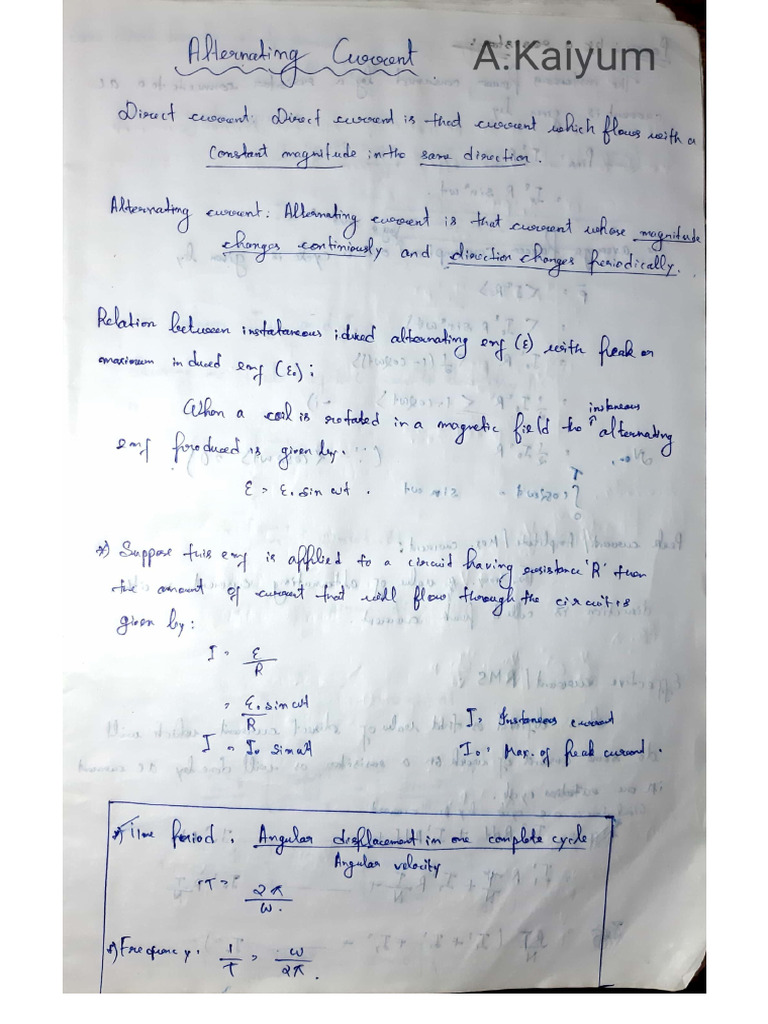 Alternating Current A.Kaiyum
Direct current: Direct current is that current which flows with a
constant magnitude in the same direction.
Alternating current: Alternating current is that current whose magnitude
changes continiously and direction changes periodically.
Relation between instataneous iduced alternating emf (ε) with peak or
maximum induced emf (ε₀):
instaneous
When a coil is rotated in a magnetic field the alternating
emf produced is given by.
ε = ε₀ sin ωt .
*) Suppose this emf is applied to a circuid having resistance 'R' then
the amount of current that will flow through the circuit is
given by:
I = ε/R
= ε₀ sin ωt/R I = Instaneous current
I = I₀ sin ωt I₀ = Max. of Peak current.
*) Time Period: Angular displacement in one complete cycle
Angular velocity
T = 2π/ω.
*) Frequency: 1/T = ω/2π.